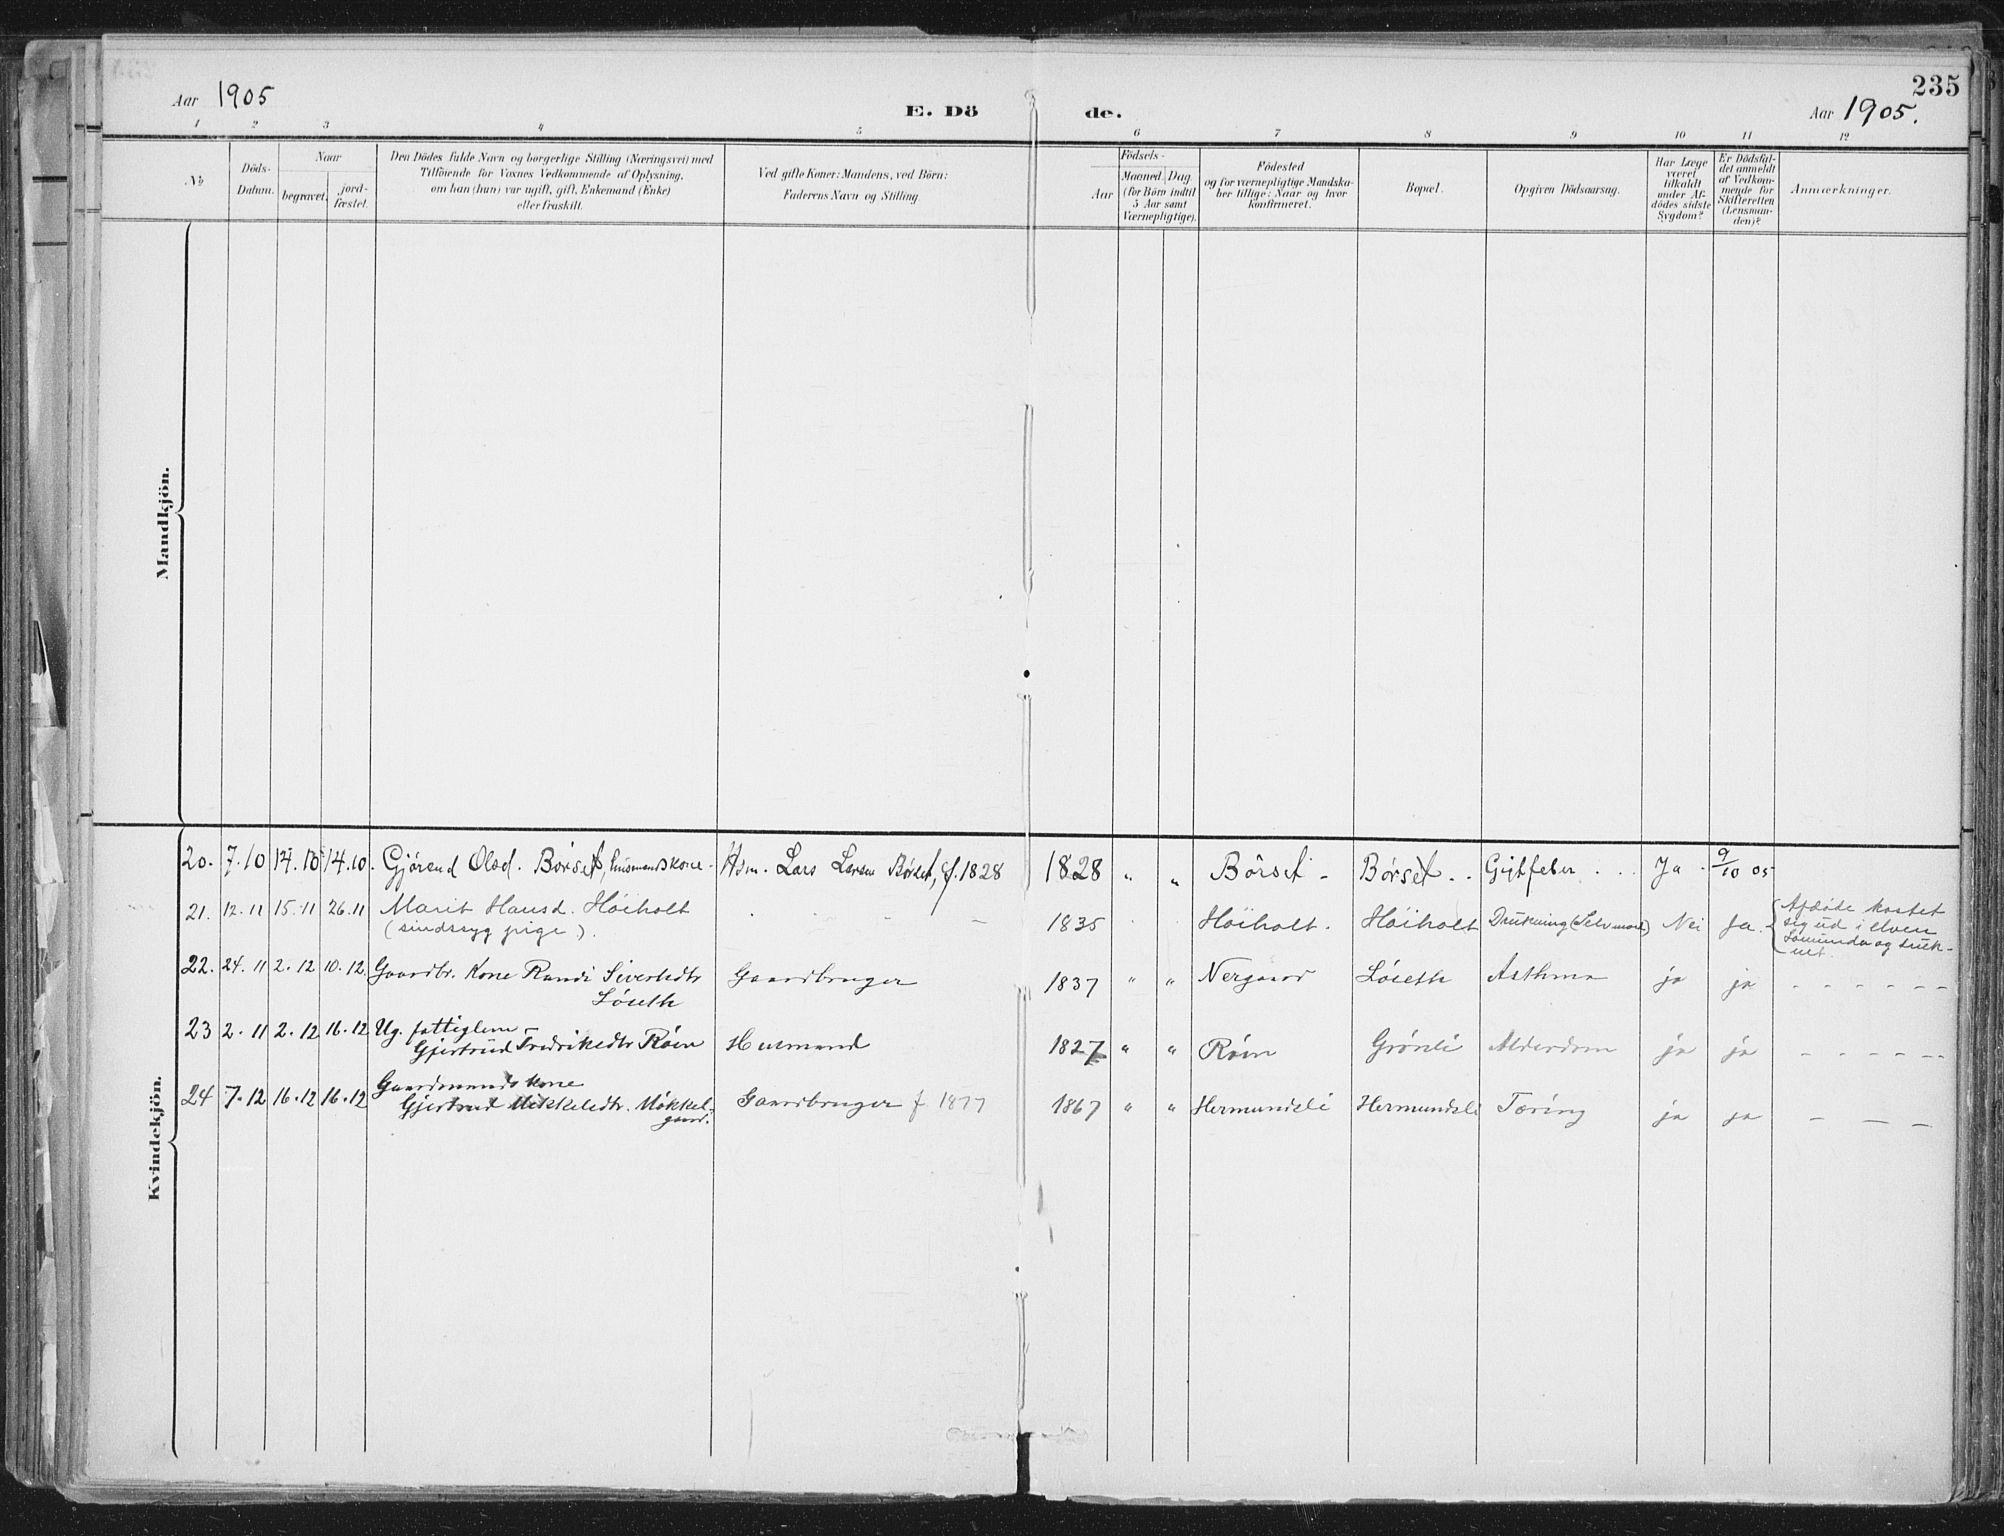 235
Aar 1905
E. Dö de.
Aar 1905.
1 2 3 4 5 6 7 8 9 10 11 12
No
Döds-Datum.
Naar
begravet. jord-fæstet.
Den Dödes fulde Navn og borgerlige Stilling (Næringsvei) med
Tilföiende for Voxnes Vedkommende af Oplysning,
om han (hun) var ugift, gift, Enkemand (Enke)
eller fraskilt.
Ved gifte Koner: Mandens, ved Börn:
Faderens Navn og Stilling.
Födsels-
Aar
Maaned. Dag.
(for Börn indtil
5 Aar samt
Værnepligtige).
Födested
og for værnepligtige Mandska-
ber tillige: Naar og hvor
konfirmeret.
Bopæl.
Opgiven Dödsaarsag.
Har Læge
været
tilkaldt
under Af-
dödes sidste
Sygdom?
Er Dödsfal-
det anmeldt
af Vedkom-
mende for
Skifteretten
(Lensman-
den)?
Anmærkninger.
Mandkjön.
Kvindekjön.
20. 7.10 14.10 14.10. Gjörend Olsd. Børset, husmandskone - Hsm. Lars Larsen Børset, f. 1828 1828 " " Börset - Børset . . Gigtfeber . . . Ja . 9/10 05
21. 12.11 15.11 26.11 Marit Hansd. Høiholt
(sindssyg pige).
1835 Høiholt. Høiholt Drukning (Selvmord) Nei Ja. Afdøde kastet
sig ud i elven
Sauunda og druk-
net.
22. 24.11 2.12 10.12. Gaardbr. Kone Randi Sivertsdtr
Løseth
Gaardbruger 1837 " " Nergaard Løseth Asthma ja ja - - - - - -
23 2.11 2.12 16.12 Ug. fattiglem
Gjertrud Fredriksdtr Røen Husmand 1827 " " Røen Grønli Alderdom ja ja - - - - - -
24 7.12 16.12 16.12 Gaardmands kone
Gjertrud Mikkelsdtr. Møkkel-
gaard.
Gaardbruger f 1877 1867 " " Hermundsli Hermundsli Tæring ja ja - - - -